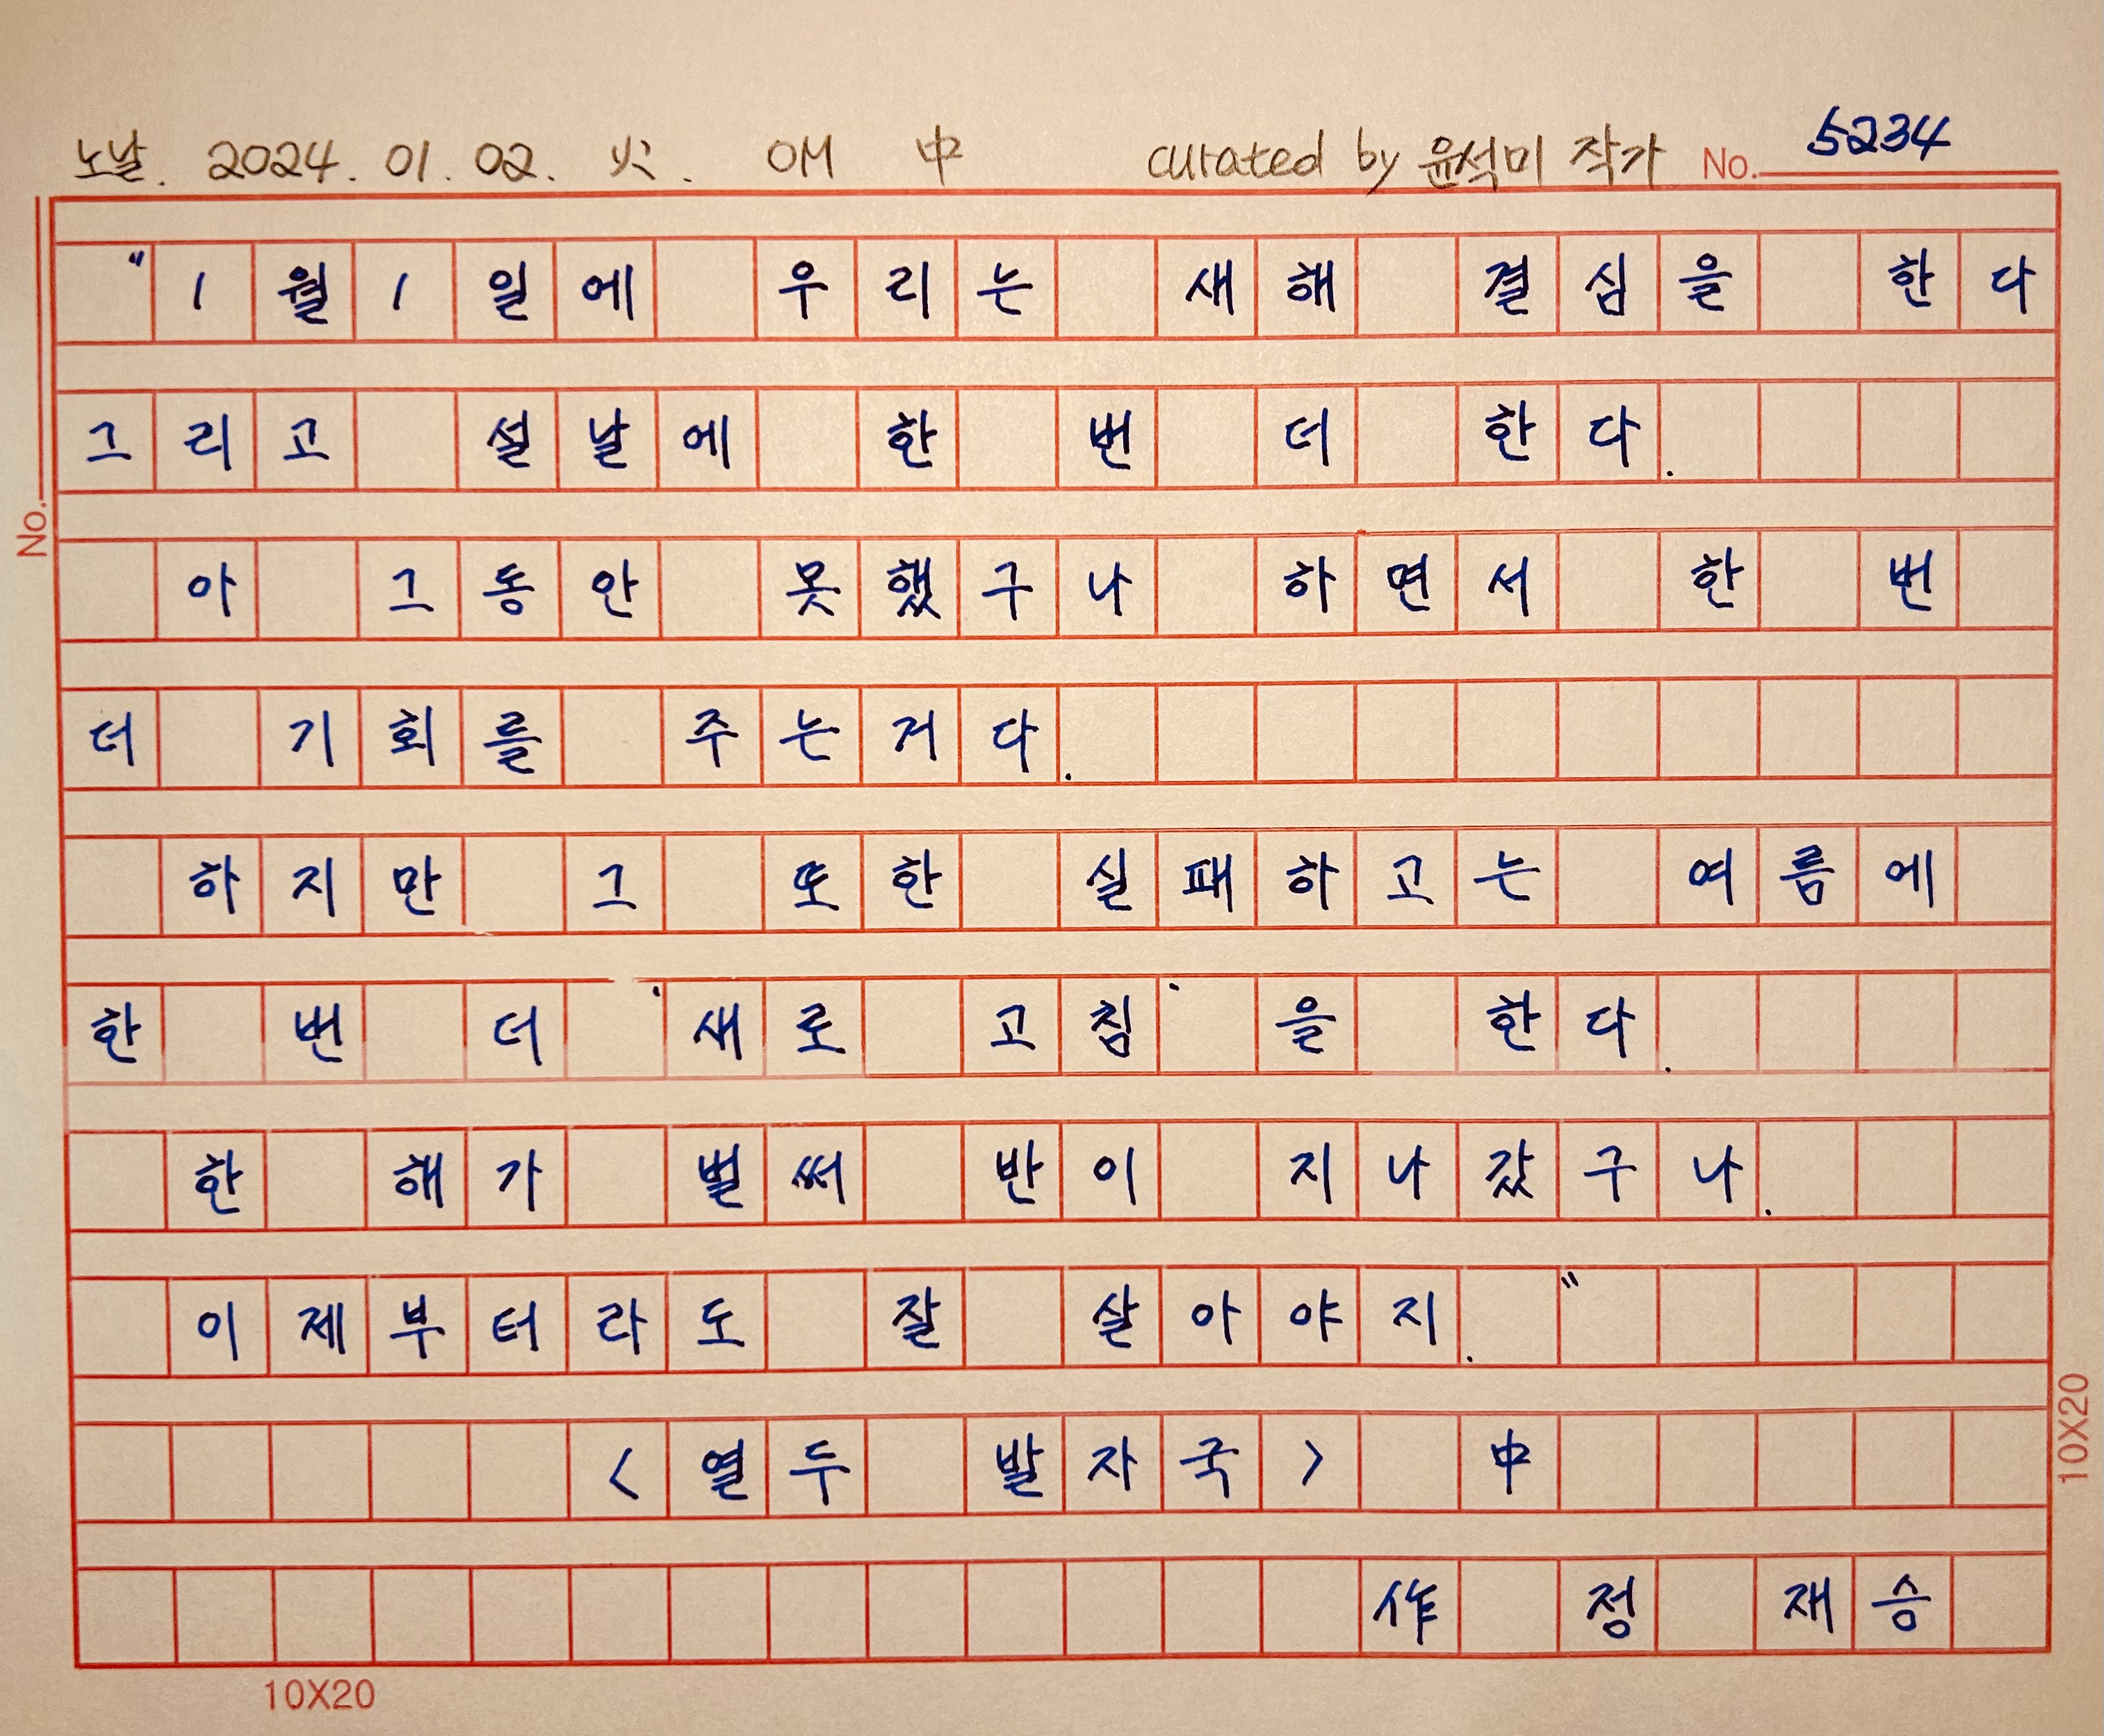 노날. 2024. 01. 02. 火. OM 中 curated by 윤석미 작가 No. 5234
"1월1일에 우리는 새해 결심을 한다
그리고 설날에 한 번 더 한다.
아 그동안 못했구나 하면서 한 번
더 기회를 주는거다.
하지만 그 또한 실패하고는 여름에
한 번 더 '새로 고침'을 한다.
한 해가 벌써 반이 지나갔구나.
이제부터라도 잘 살아야지."
<열두 발자국> 中
作 정 재승
No.
10X20
10X20